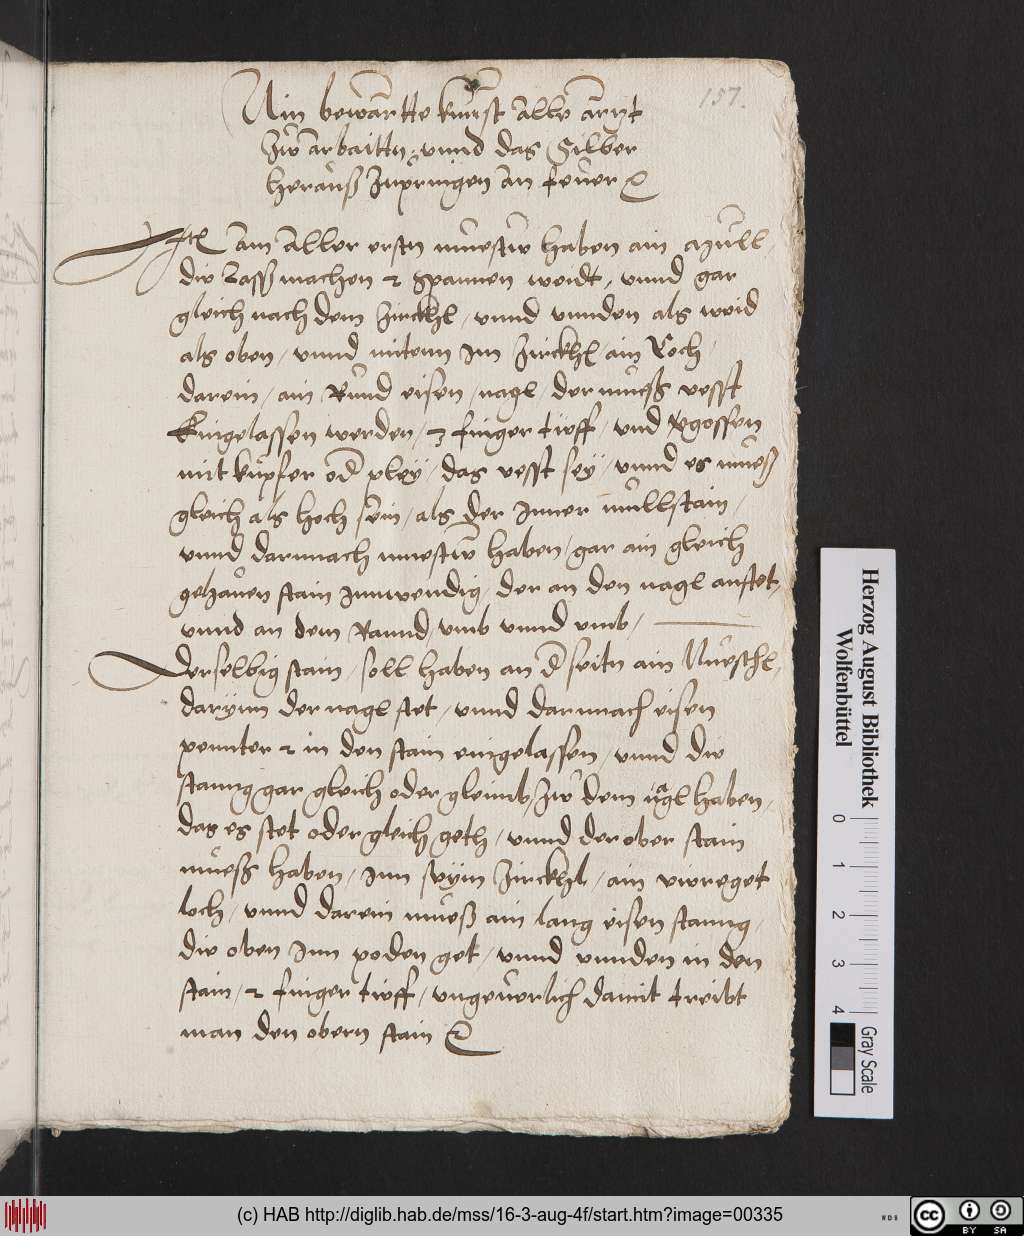 157.
Ain bewärtte kunst alle ärtzt
zw arbaittn, vnnd das Silber
herauß zupringen an feuer ꝛc
Itẽ am aller erstn muestw haben ain mzull,
die laß machen 2 spannen weidt, vnnd gar
gleich nach dem zirckhl, vnnd vnnden als weid
als oben, vnnd mitenn im zirckhl ain loch,
darein, ain Rund eisen, nagl, der mueß vesst
Eingelassen werden, 3 finger tieff, vnd vgossen
mit kupfer od pley, das vesst sey, vnnd es mueß
gleich als hoch sein, als der inner mullstain,
vnnd darnnach muestw haben, gar ain gleich
gehauen stain innwendig, der an den nagl anstet,
vnnd an dem Rannd, vmb vnnd vmb,
Derselbig stain, soll haben an d seitn ain Nueschl,
daryim der nagl stet, vnnd darnnach eisen
pennter 2 in den stain eingelassen, vnnd die
stanng gar gleich oder gleimb, zw dem nagl haben,
das es stet oder gleich geth, vnnd der ober stain
mueß haben, inn seyim zirckhl, ain vireget
loch, vnnd darein mueß ain lang eisen stanng,
die oben inn poden get, vnnd vnnden in den
stain, 2 finger tieff, vngeuerlich damit treibt
man den obern stain ꝛc
Herzog August Bibliothek
Wolfenbüttel
0 1 2 3 4
Gray Scale
(c) HAB http://diglib.hab.de/mss/16-3-aug-4f/start.htm?image=00335
cc BY SA